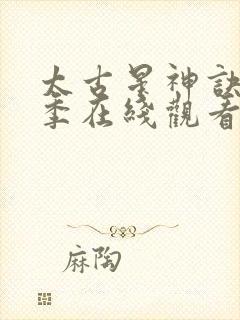 太古星神訣
季在綫觀看
麻陶